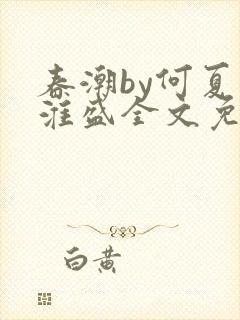 春潮by何夏
淮盛全文免
白黄